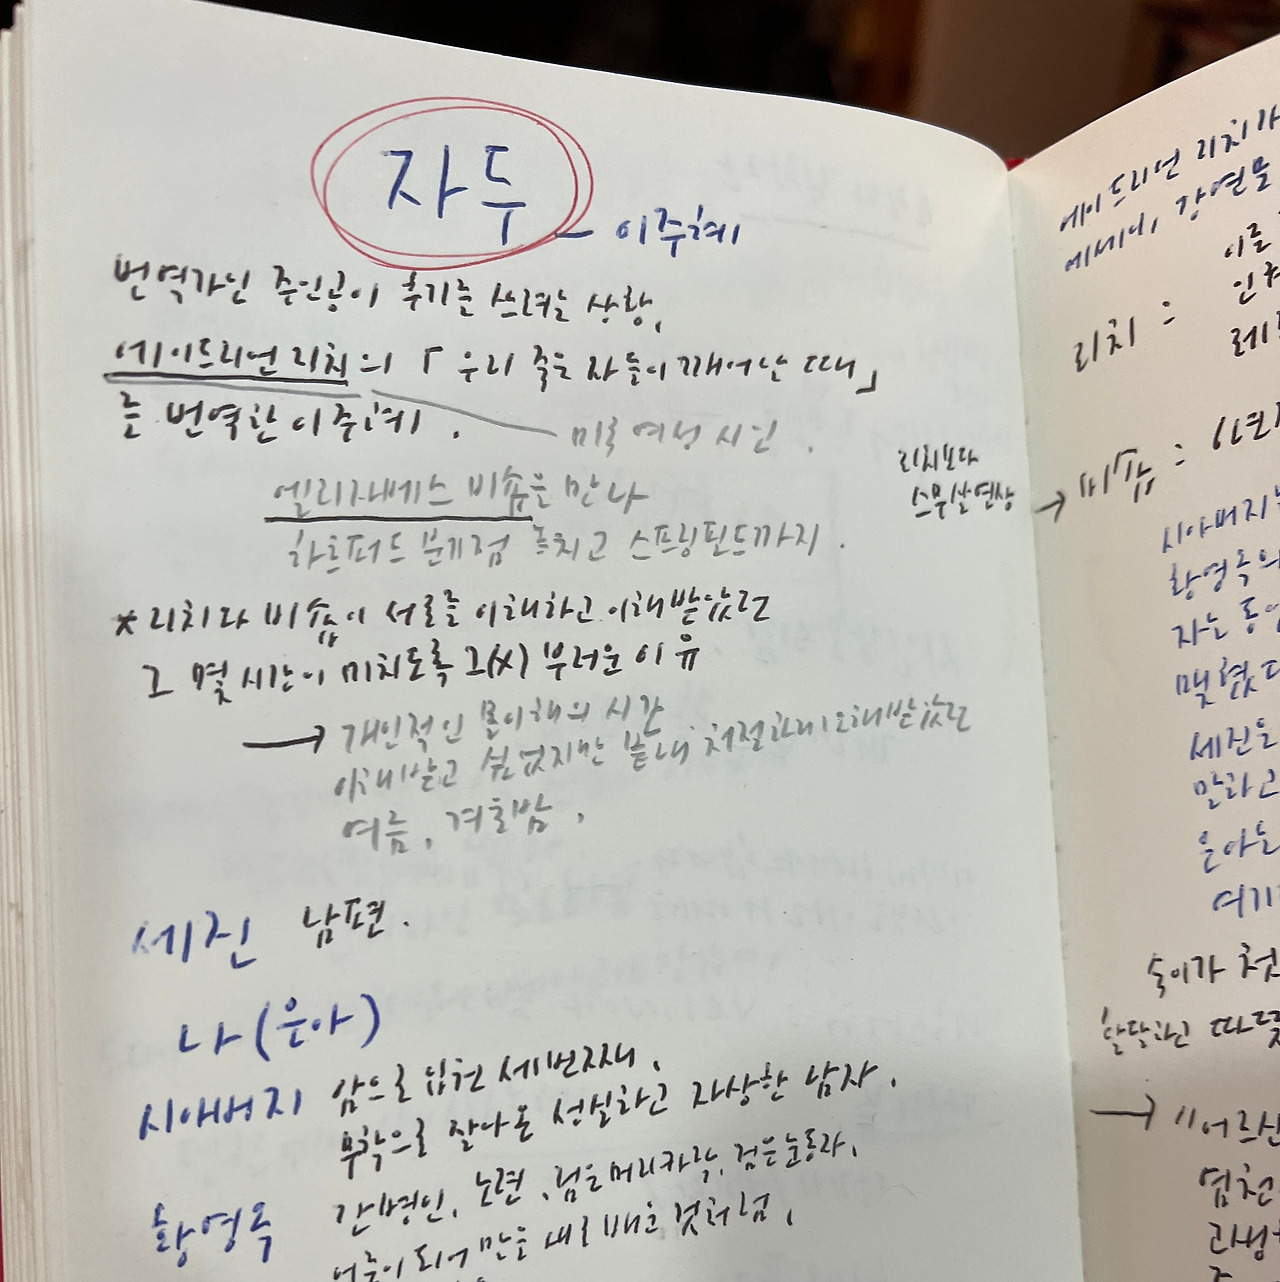 자두
- 이주혜
번역가인 주인공이 후기를 쓰려는 상황,
에이드리언 리치의 「우리 죽은 자들이 깨어날 때」
를 번역한 이주혜.
미국 여성 시인.
엘리자베스 비숍을 만나
하트퍼드 분기점 놓치고 스프링필드까지.
*리치와 비숍이 서로를 이해하고 이해받았던
그 몇 시간이 미치도록 그(서) 부러운 이유
→ 개인적인 몰이해의 시간
이해받고 싶었지만 끝내 처절하게 오해받았던
여름, 겨울밤.
세진 남편.
나(은아)
시아버지 암으로 입원 세번째,
무학으로 살아온 성실하고 자상한 남자.
황영옥 간병인, 노련, 검은머리카락, 검은눈동자,
되어 만든 새로 배운 것처럼,
에이드리언 리치가
에세이, 강연문
이를
리치 :
리치보다
스무살연상
→ 비숍 :
시아버지는
황영옥의
자는 동안
맺혔다
세진은
말라고
은아는
여기
숙이가 첫
활달하고
→ "어르신
염천
고생